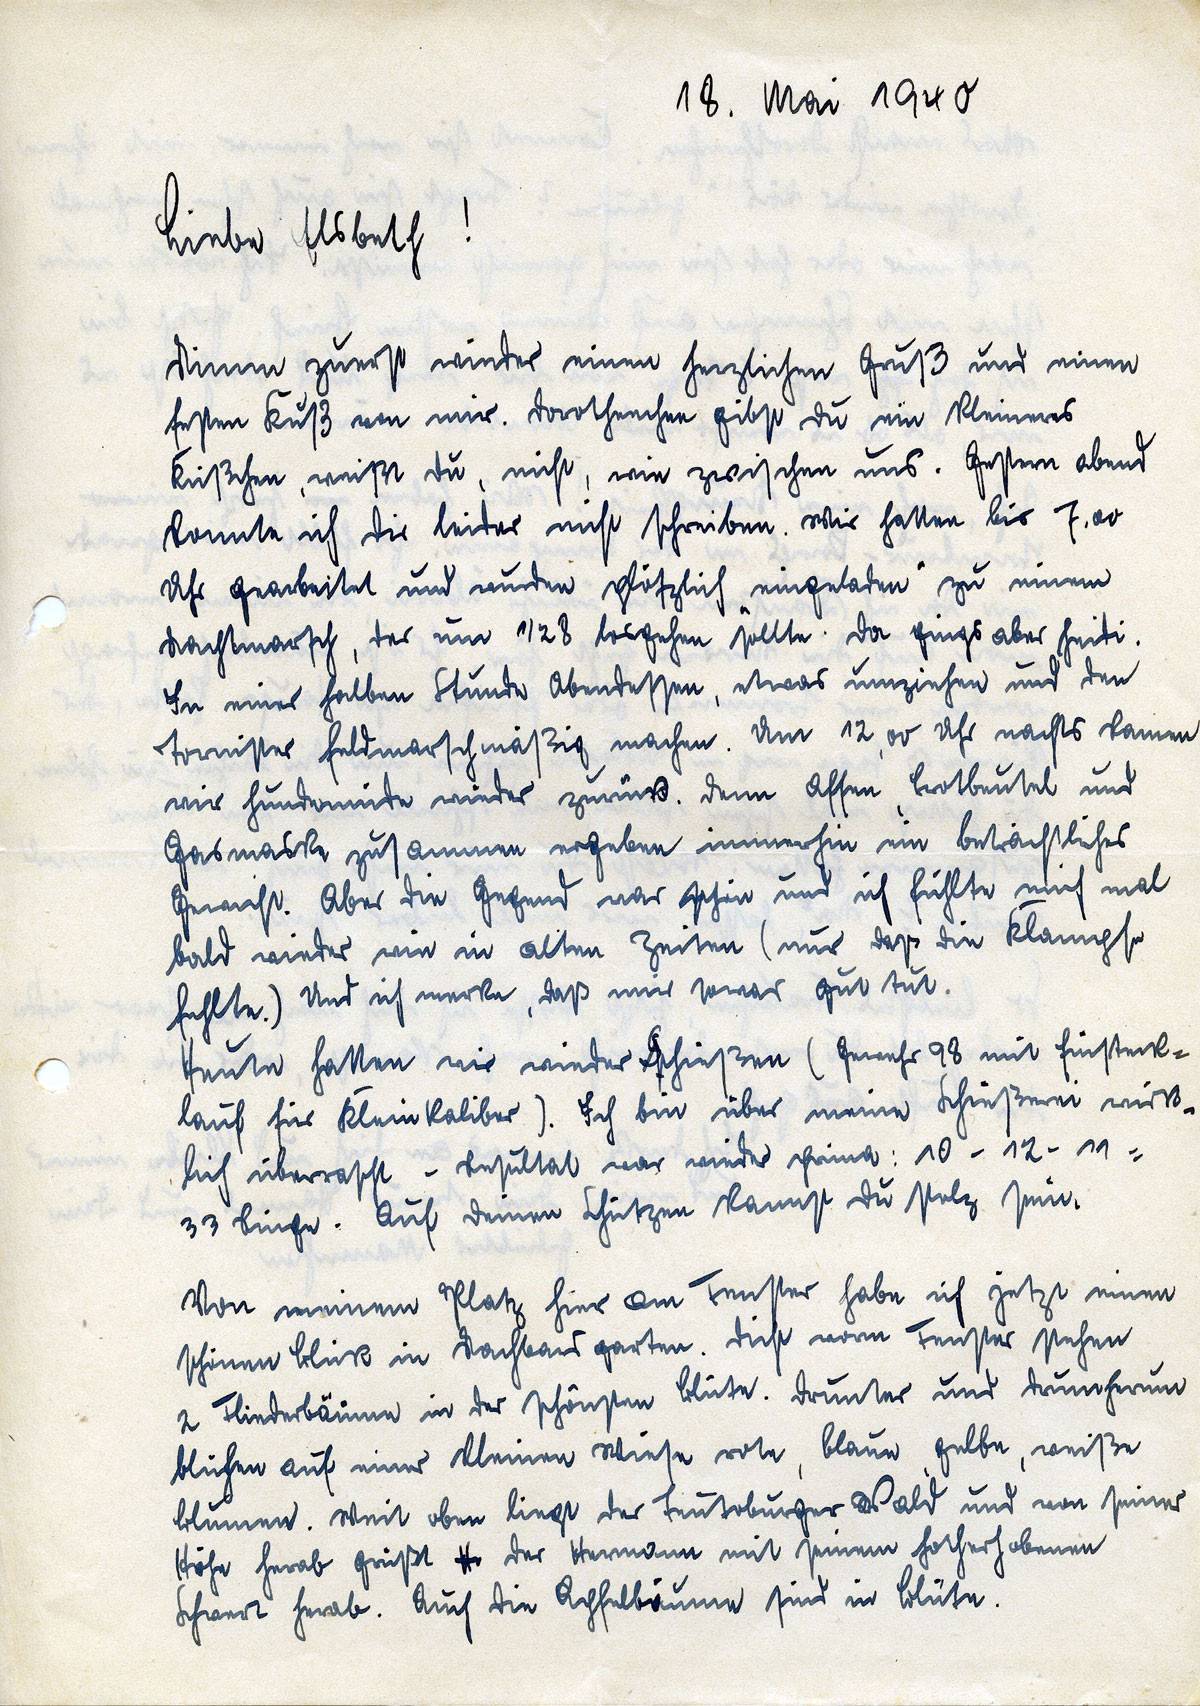 18. Mai 1940
Liebe Elsbeth !
Nimm zuerst wieder einen herzlichen Gruß und einen
festen Kuß von mir. Dorothenchen gibst Du ein kleineres
Küßchen, weißt Du, nicht, wie zwischen uns. Gestern abend
konnte ich Dir leider nicht schreiben. Wir hatten bis 7.00
Uhr gearbeitet und wurden plötzlich „eingeladen“ zu einem
Nachtmarsch, der um 1/28 losgehen sollte. Da gings aber heidi.
In einer halben Stunde Abendessen, etwas umziehen und den
Tornister feldmarschmäßig machen. Um 12,00 Uhr nachts kamen
wir hundemüde wieder zurück. Denn Affen, Brotbeutel und
Gasmaske zusammen ergeben immerhin ein beträchtliches
Gewicht. Aber die Gegend war schön und ich fühlte mich mal
bald wieder wie in alten Zeiten (nur daß die Klampfe
fehlte.) Und ich merke, daß mir sowas gut tut.
Heute hatten wir wieder Schießen (Gewehr 98 mit Einsteck-
lauf für Kleinkaliber). Ich bin über meine Schießerei wirk-
lich überrascht – Resultat war wieder prima: 10 - 12 - 11 =
33 Ringe. Auf Deinen Schützen kannst Du stolz sein.
Von meinem Platz hier am Fenster habe ich jetzt einen
schönen Blick in Nachbars garten. Dicht vorm Fenster stehen
2 Fliederbäume in der schönsten Blüte. Drunter und drumherum
blühen auf einer kleinen Wiese rote, blaue, gelbe, weiße
Blumen. Weit oben liegt der Teutoburger Wald und von seiner
Höhe herab grüßt der Hermann mit seinem hocherhobenen
Schwert herab. Auch die Apfelbäume sind in Blüte.